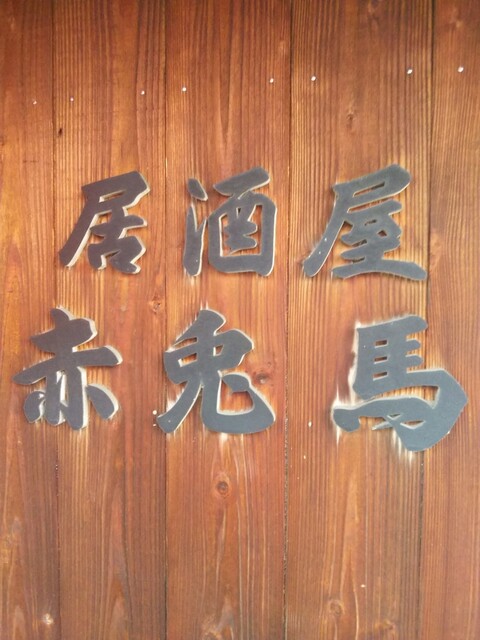 居酒屋
赤兎馬